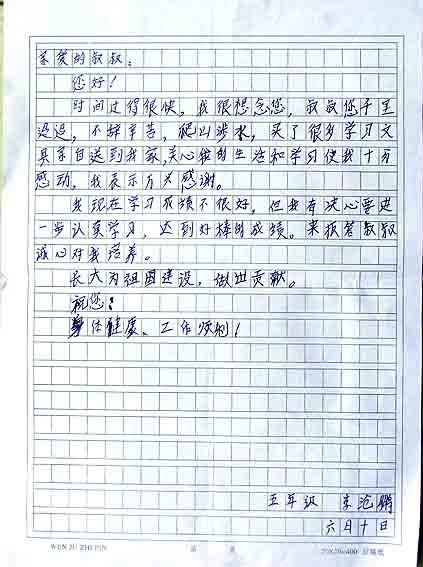 亲爱的叔叔：
您好！
时间过得很快，我很想念您，叔叔您千里
迢迢，不辞辛苦，爬山涉水，买了很多学习文
具亲自送到我家，关心我的生活和学习使我十分
感动，我表示万分感谢。
我现在学习成绩不很好，但我有决心要进
一步认真学习，达到好棒的成绩。来报答叔叔
诚心对我培养。
长大为祖国建设，做出贡献。
祝您：
身体健康、工作顺利！
五年级
六月十日
WEN JU ZHI PIN
20X20=400